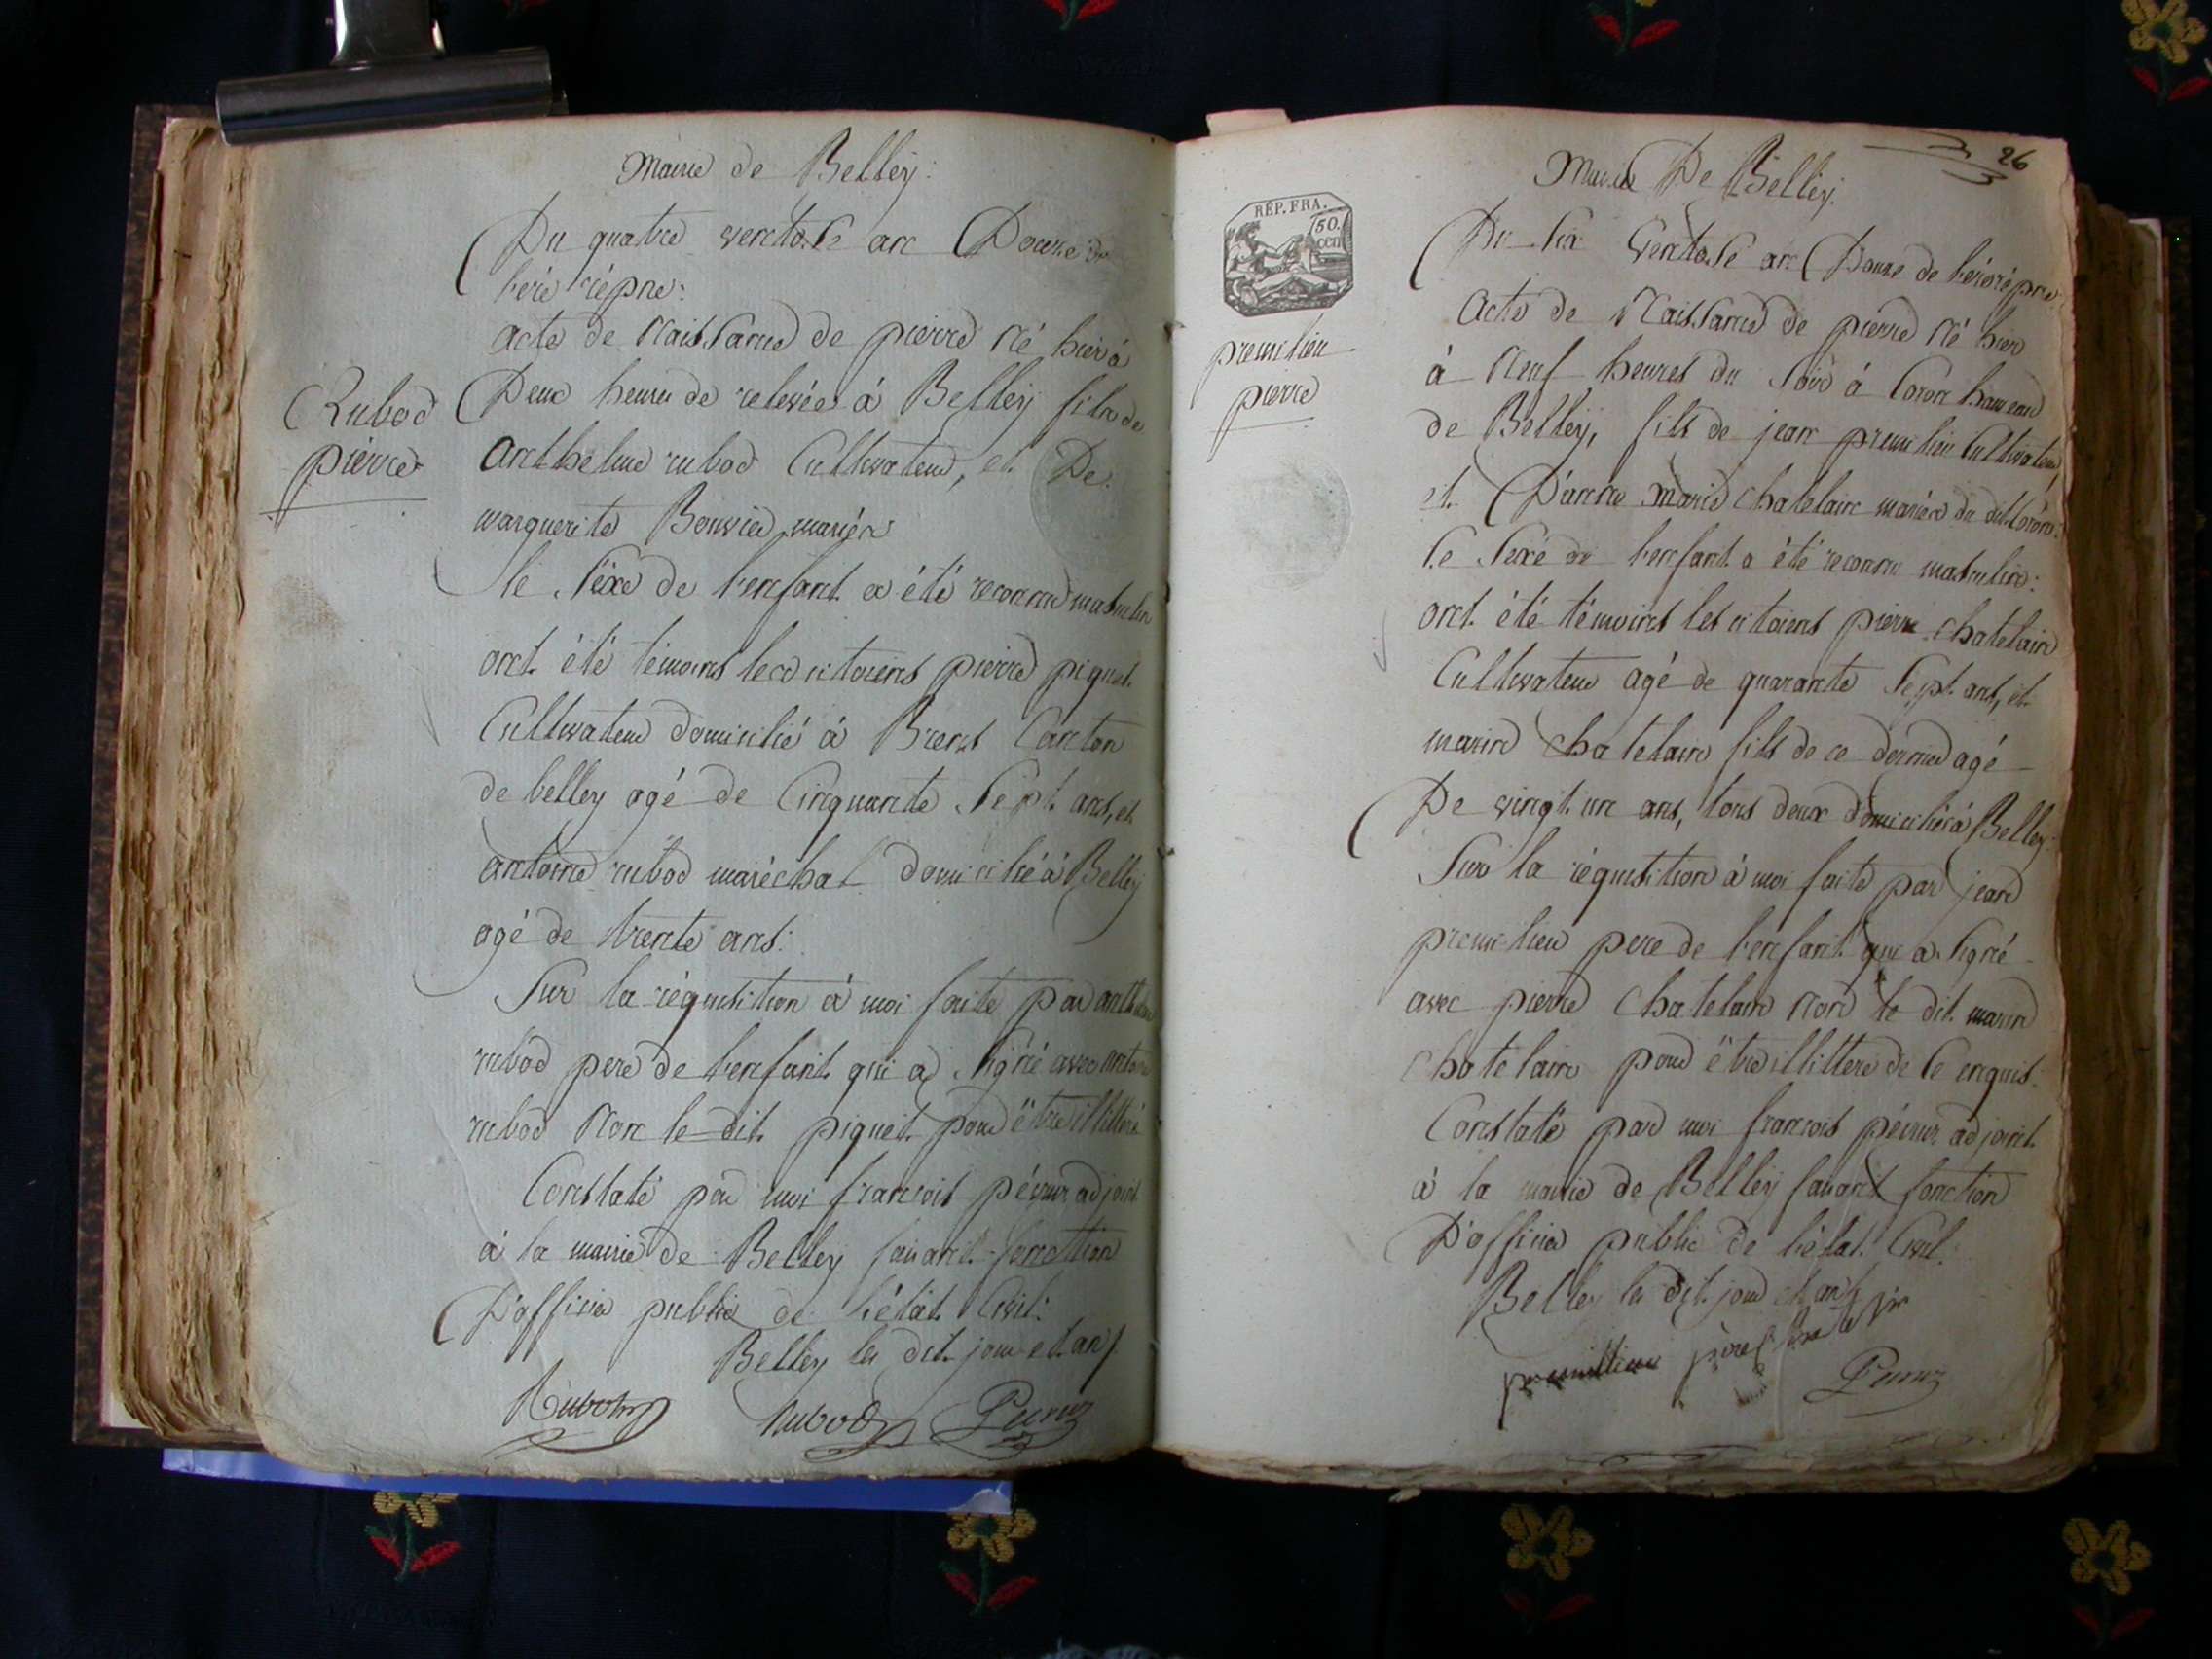 Mairie de Belley:
Du quatre ventose an Douze de
l'ère répne:
acte de Naissance de pierre Né hier à
Rubod
pierre
Deux heures de relevée à Belley fils de
anthelme rubod Cultivateur, et De
marguerite Bouvier mariés
le Séxe de l'enfant a été reconnu masculin
ont été témoins les citoiens pierre piquet
Cultivateur domicilié à Brens Canton
de belley agé de Cinquante Sept ans, et
antoine rubod maréchal domicilié à Belley
agé de trente ans:
Sur la réquisition à moi faite par anthelme
rubod pere de l'enfant qui a Signé avec antoine
rubod Non le dit piquet pour être illittéré
Constaté par moi francois péruz adjoint
à la mairie de Belley faisant fonction
D'officier public de l'état Civil:
Belley les dit jour et an
Rubod Peruz
26
Mairie De Belley:
RÉP. FRA.
50.
cen
premilieu
pierre
Du Six Ventose an Douze de l'ère répne
Acte de Naissance de pierre Né hier
à Neuf heures du Soir à Coron hameau
de Belley, fils de jean premilieu Cultivateur,
et D'anne Marie Chatelain mariés du dit Coron:
le Sexe de l'enfant a été reconnu masculin:
ont été témoins les citoiens pierre Chatelain
Cultivateur agé de quarante Sept ans, et
marin Chatelain fils de ce dernier agé
De vingt un ans, tous deux domiciliés à Belley:
Sur la réquisition à moi faite par jean
premilieu pere de l'enfant qui a Signé
avec pierre Chatelain Non le dit marin
Chatelain pour être illittere de ce enquis:
Constaté par moi francois péruz adjoint
à la mairie de Belley faisant fonction
D'officier public de l'état Civil:
Belley les dit jour et an
premillieu père Peruz